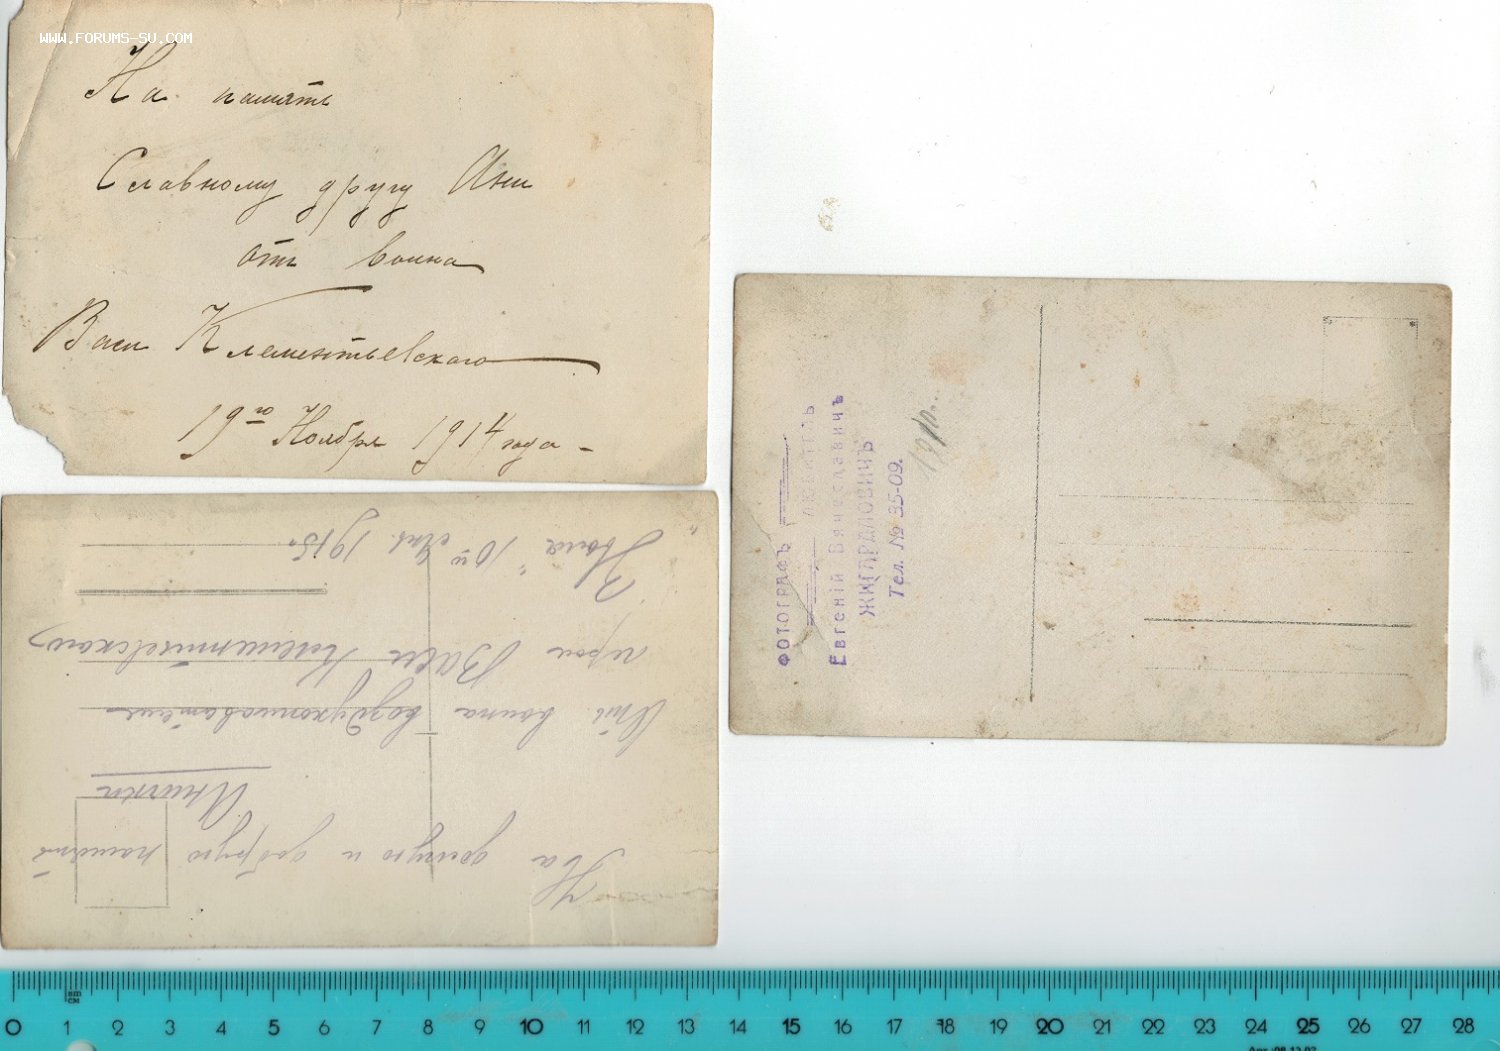 WWW.FORUMS-SU.COM
На память
Славному другу Ани
отъ воина
Васи Клементьевскаго
19го Ноября 1914 года -
На долгую и добрую память
Анички
Отъ воина воздухоплавателя
героя Васи Клементьевскаго
10го 1915г.
ФОТОГРАФЪ ЛЮБИТЕЛЬ
Евгеній Вячеславичъ
ЖИГАРДЛОВИЧЪ
Тел. № 35-09.
0 1 2 3 4 5 6 7 8 9 10 11 12 13 14 15 16 17 18 19 20 21 22 23 24 25 26 27 28